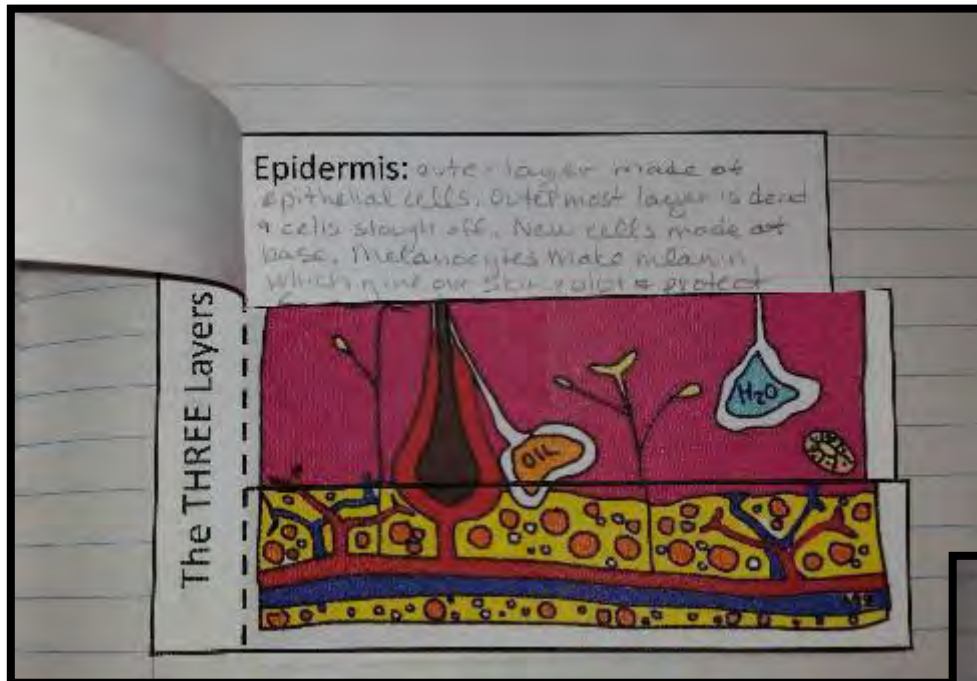 Epidermis: outer layer made of
epithelial cells. Outermost layer is dead
& cells slough off. New cells made at
base. Melanocytes make melanin
which give our skin color & protect
The THREE Layers
OIL
H2O